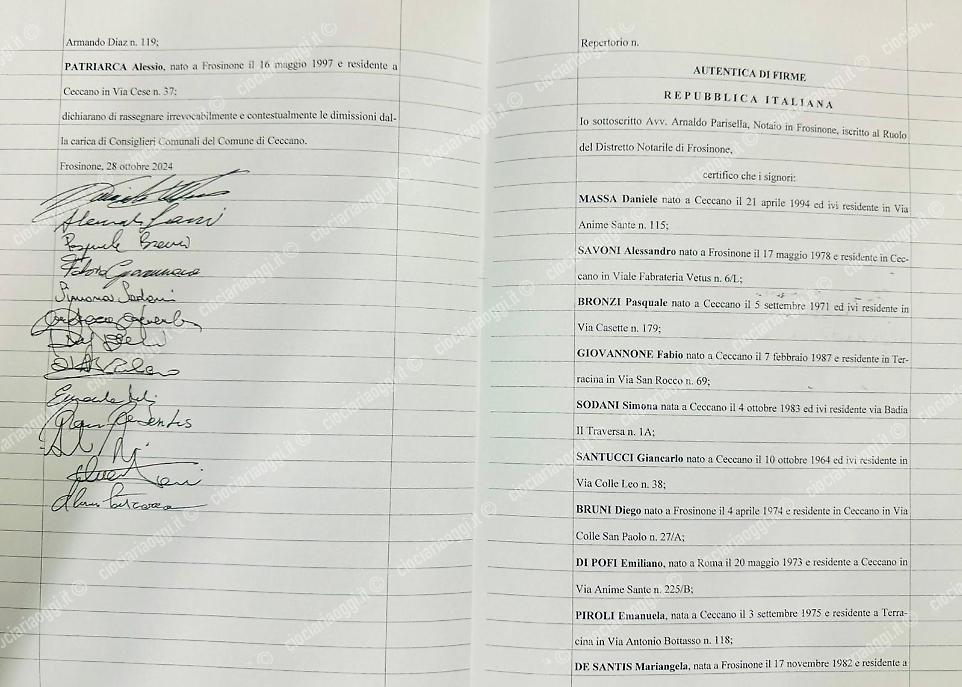 Armando Diaz n. 119;
PATRIARCA Alessio, nato a Frosinone il 16 maggio 1997 e residente a
Ceccano in Via Cese n. 37;
dichiarano di rassegnare irrevocabilmente e contestualmente le dimissioni dal-
la carica di Consiglieri Comunali del Comune di Ceccano.
Frosinone, 28 ottobre 2024
Pasquale Bronzi
Simona Sodani
Repertorio n.
AUTENTICA DI FIRME
REPUBBLICA ITALIANA
Io sottoscritto Avv. Arnaldo Parisella, Notaio in Frosinone, iscritto al Ruolo
del Distretto Notarile di Frosinone,
certifico che i signori:
MASSA Daniele nato a Ceccano il 21 aprile 1994 ed ivi residente in Via
Anime Sante n. 115;
SAVONI Alessandro nato a Frosinone il 17 maggio 1978 e residente in Cec-
cano in Viale Fabrateria Vetus n. 6/L;
BRONZI Pasquale nato a Ceccano il 5 settembre 1971 ed ivi residente in
Via Casette n. 179;
GIOVANNONE Fabio nato a Ceccano il 7 febbraio 1987 e residente in Ter-
racina in Via San Rocco n. 69;
SODANI Simona nata a Ceccano il 4 ottobre 1983 ed ivi residente via Badia
II Traversa n. 1A;
SANTUCCI Giancarlo nato a Ceccano il 10 ottobre 1964 ed ivi residente in
Via Colle Leo n. 38;
BRUNI Diego nato a Frosinone il 4 aprile 1974 e residente in Ceccano in Via
Colle San Paolo n. 27/A;
DI POFI Emiliano, nato a Roma il 20 maggio 1973 e residente a Ceccano in
Via Anime Sante n. 225/B;
PIROLI Emanuela, nata a Ceccano il 3 settembre 1975 e residente a Terra-
cina in Via Antonio Bottasso n. 118;
DE SANTIS Mariangela, nata a Frosinone il 17 novembre 1982 e residente a
© ciociariaoggi.it